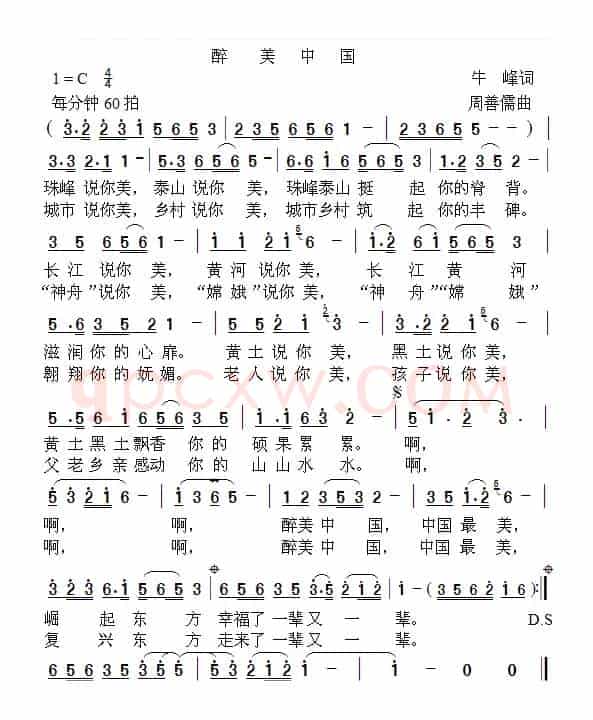 醉 美 中 国
1=C 4/4 牛 峰词
每分钟 60 拍 周善儒曲
( 3·2 2 3 1 5 6 5 3 | 5 6 5 3 5 6 1 - | 2 3 6 5 5 - - ) |
3·3 2·1 1 - | 5·3 6 5 6 5 - | 6·6 1 6 5 5 | 1·2 2 3 5 - |
珠峰 说你美， 泰山 说你 美， 珠峰泰山 挺 起 你的脊 背。
城市 说你美，乡村 说你 美，城市乡村 筑 起 你的丰 碑。
3 5 6 5 6 - | 1 1 2 1 6 - | 1·2 6 1 5 6 5 3 |
长江 说你 美， 黄河 说你 美， 长 江 黄 河
“神舟”说你 美，“嫦 娥”说你 美，“神 舟”“嫦 娥”
5·6 3 5 2 1 - | 5·5 3 5 3 - | 6·6 3 2 3 - |
滋润你的心扉。 黄土说你 美， 黑土说你 美，
翱翔你的妩媚。 老人说你 美， 孩子说你 美，
qpcxw.com
5·5 6 5 6 5 3 5 | 1·2 1 6 5 6 - | 5 1·2 3 |
黄土黑土飘香 你的 硕果累 累。 啊，
父老乡亲感动 你的 山山水 水。 啊，
5 3 2 1 6 - | 1 3 6 5 - | 1 2 3 5 3 2 | 3 5 1·2 6 - |
啊， 啊， 醉美中 国， 中国最 美，
啊， 啊， 醉美中 国， 中国最 美，
3 2 3 6·1 5 6 5 3 | 6 5 6 5 3 5 3·5 2 1 2 | 1 - ( 3 5 6 2 1 6 ) :|
崛 起 东 方 幸福了一辈又 一 辈。 D.S
复 兴 东 方 走来了一辈又 一 辈。
6 5 6 5 3 5 3 5 5 | 5 5 2 1 2 1 - | 1 - 0 0 ‖